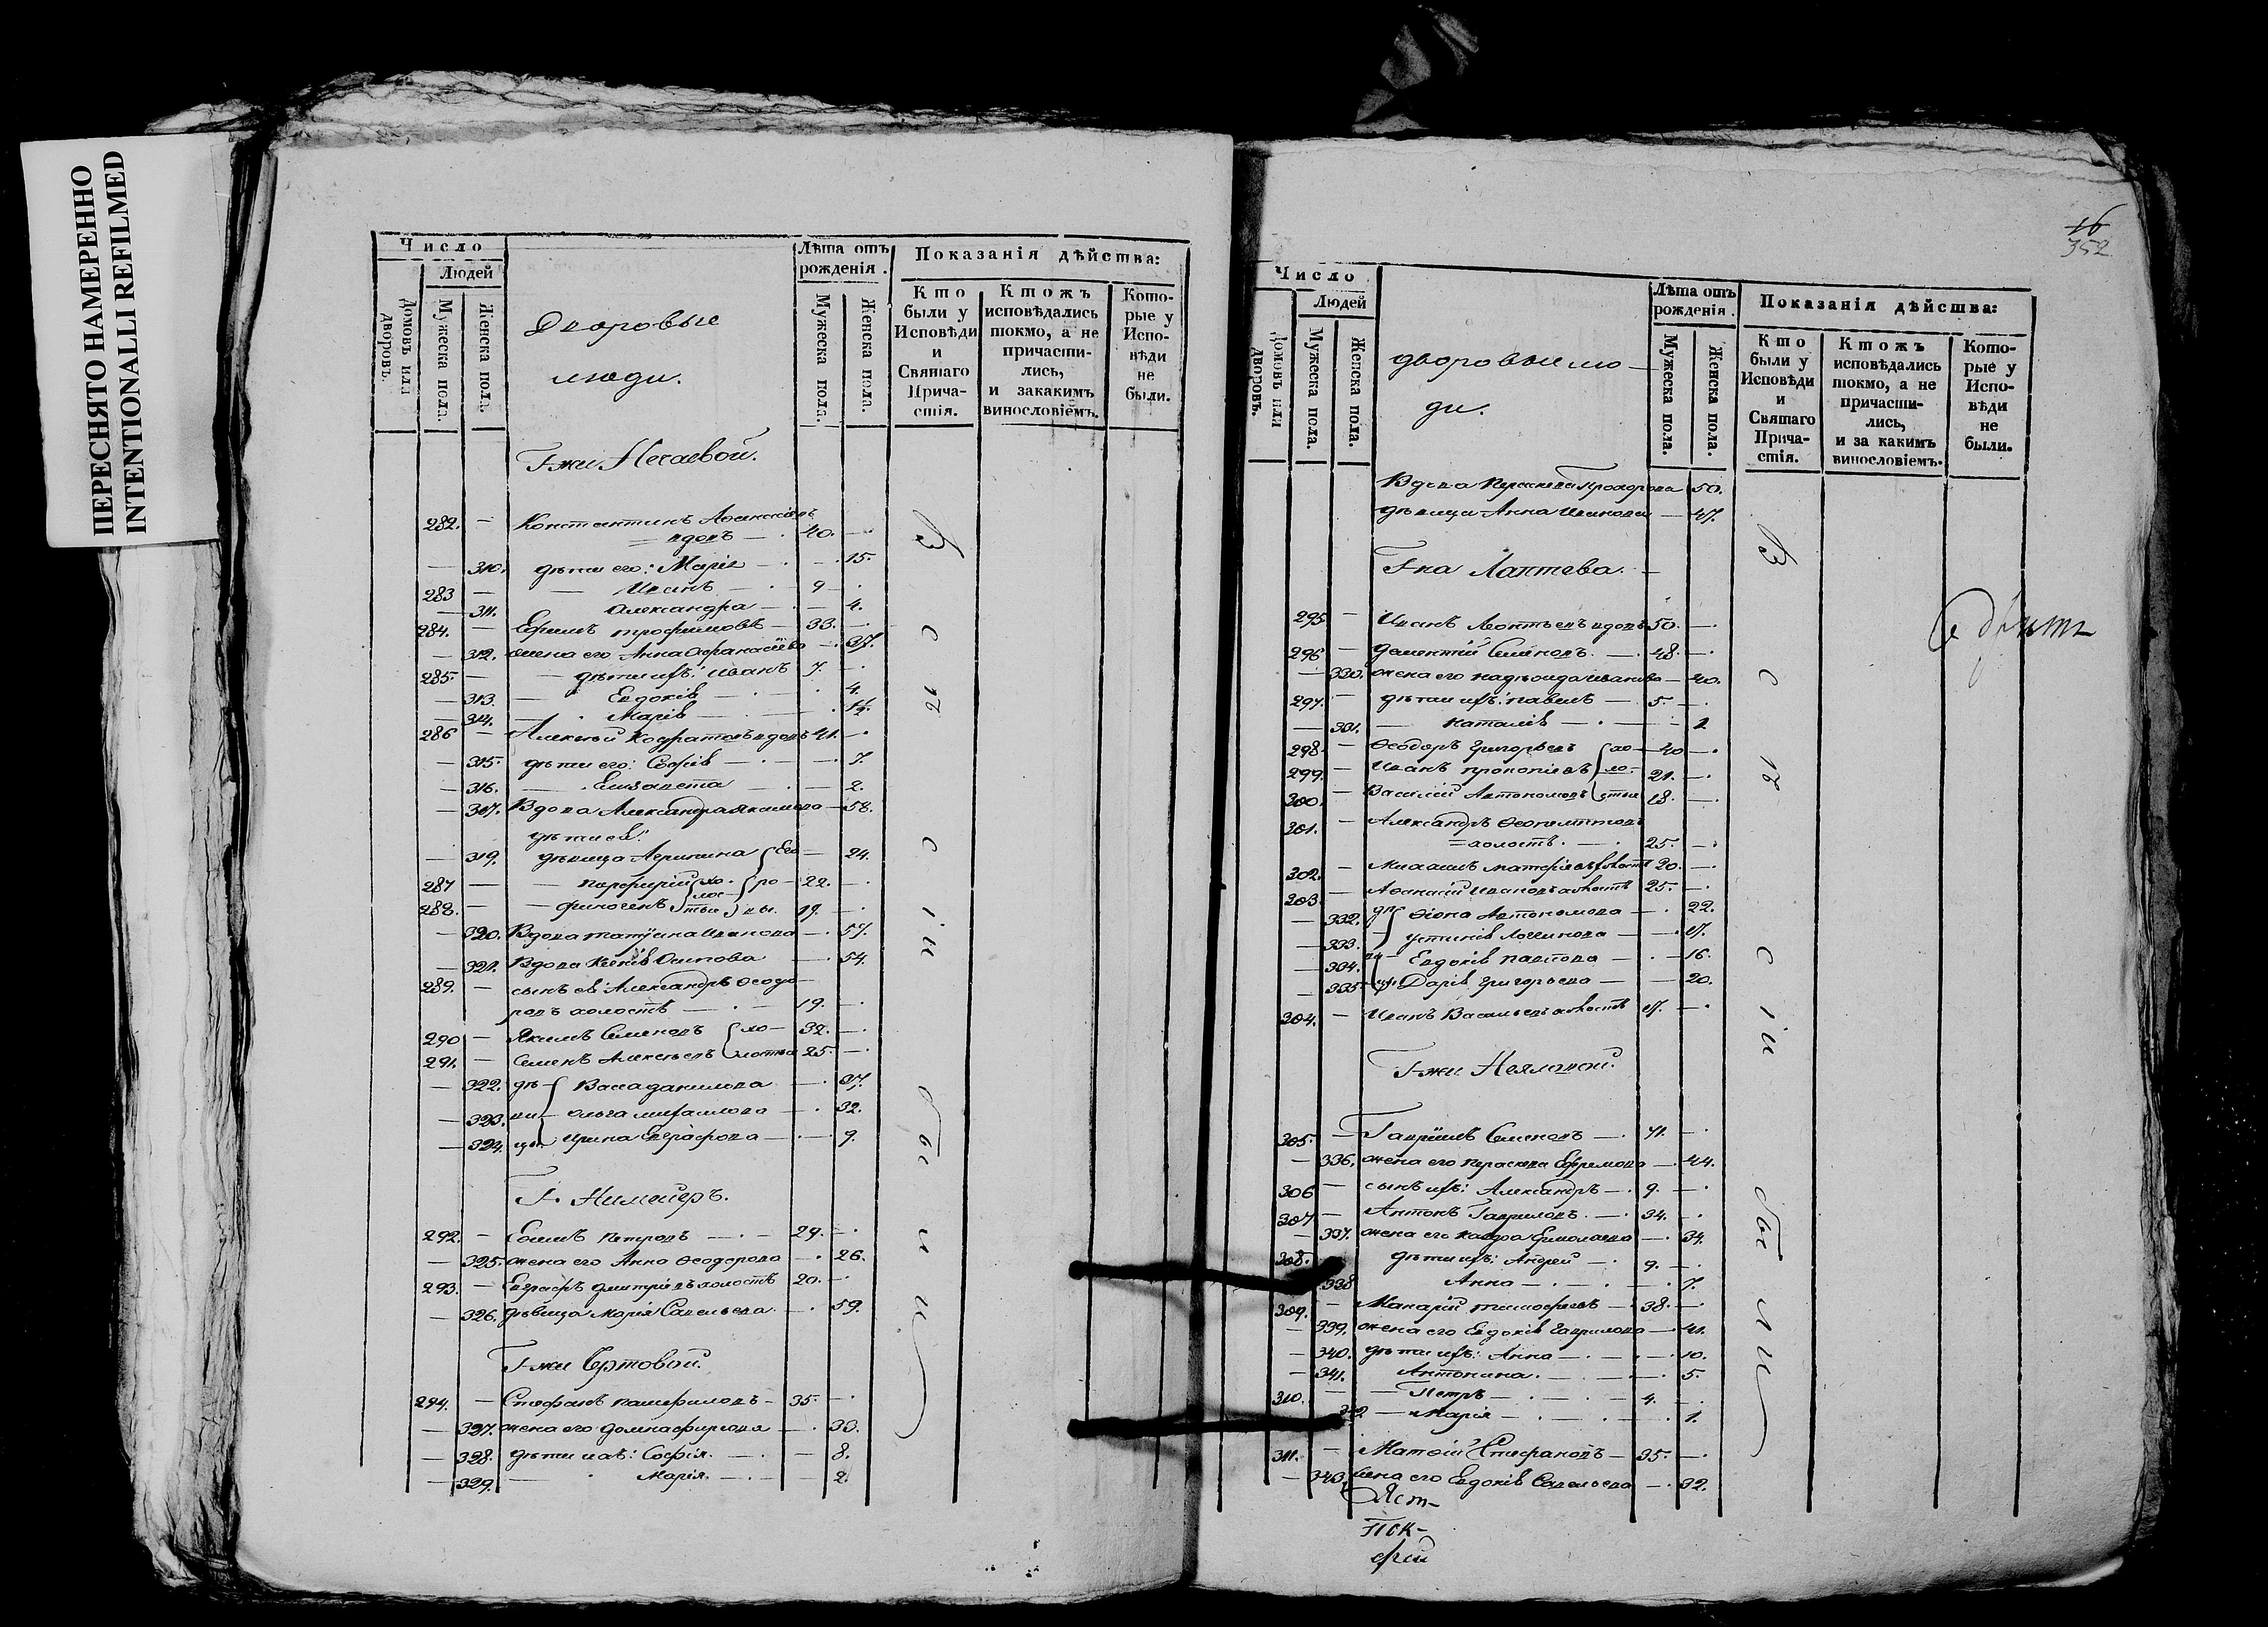 ПЕРЕСНЯТО НАМЕРЕННО
INTENTIONALLI REFILMED
Число
Людей
Домовъ или дворовъ.
Мужеска пола.
Женска пола.
Дворовые
люди.
Лѣта отъ рожденія.
Мужеска пола.
Женска пола.
Показанія дѣйства:
Кто были у Исповѣди и Святаго Прича-стія.
Ктожъ исповѣдались токмо, а не причасти-лись, и закакимъ винословіемъ.
Кото-рые у Испо-вѣди не были.
Г-жи Нечаевой.
282. — Константинъ
вдовъ — 40. —
— 310. дѣти его: Марія — 15.
283 — Иванъ — 9 —
— 311. Александра — 4.
284. — Ефимъ Трофимовъ — 33. —
— 312. жена его Анна Афанасіева — 37.
285. — дѣти ихъ: Иванъ 7. —
— 313. — Евдокія — 4.
— 314. — Марія — 1½
286 — Алексѣй вдовъ 41. —
— 315. дѣти его: Софія — 7.
— 316. — Елизавета — 2.
— 317. Вдова Александра Якимова — 58.
дѣти ея:
— 319. дѣвица Агрипина Его — 24.
287 — Парфирій хо- ро- 22. —
288. — Финогенъ лос- тыи вы. 19. —
— 320. Вдова Татіана Иванова — 57.
— 321. Вдова Ксенія Осипова — 54.
289. — сынъ ея: Александръ Ѳеодо-
ровъ холостъ — 19. —
290 — Якимъ Семеновъ хо- 32. —
291. — Семенъ Алексѣевъ лостыи 25. —
— 322. дѣ- Васса Данилова — 37.
— 323. ви- Ольга Михаилова — 32.
— 324. цы Ирина Евграфова — 9.
Г. Нимейеръ.
292. — Ѳома Петровъ — 29. —
— 325. жена его Анна Ѳеодорова — 26.
293. — Евграфъ Дмитріевъ холостъ 20. —
— 326. дѣвица Марія Савельева. — 59.
Г-жи Чертовой.
294. — Стефанъ Памфиловъ — 35. —
— 327. жена его Домна Фирсова — 33.
— 328. дѣти ихъ: Софія. — 8.
— 329. Марія. — 2.
В с ѣ с і и б ы л и
16
352
Число
Людей
Домовъ или дворовъ.
Мужеска пола.
Женска пола.
дворовые лю-
ди.
Лѣта отъ рожденія.
Мужеска пола.
Женска пола.
Показанія дѣйства:
Кто были у Исповѣди и Святаго Прича-стія.
Ктожъ исповѣдались токмо, а не причасти-лись, и за какимъ винословіемъ.
Кото-рые у Испо-вѣди не были.
Вдова Параскева Прохорова 50.
дѣвица Анна Иванова — 47.
Г-на Лаптева.
295 — Иванъ Леонтьевъ вдовъ 50. —
296 — Дементій Семеновъ. — 48. —
— 330. жена его Надѣжда Иванова — 40.
297. — дѣти ихъ: Павелъ — 5. —
— 331. — Наталія — 2
298. — Ѳеодоръ Григорьевъ хо- 40 —
299. — Иванъ Прокопіевъ ло- 21. —
300. — Василій Автономовъ стыи 18. —
301. — Александръ
холостъ. — 25. —
302. — Михаилъ холостъ 20. —
303. — Афанасій Ивановъ холостъ 25. —
— 332. дѣ- Автономова — 22.
— 333. Устинія Логинова — 17.
— 334. ви- Евдокія Павлова — 16.
— 335. цы Дарія Григорьева — 20.
304. — Иванъ Васильевъ холостъ 17. —
Г-жи
305. — Гавріилъ Семеновъ — 71. —
— 336. жена его Параскева Ефремова — 44.
306 — сынъ ихъ: Александръ — 9. —
307 — Антонъ Гавриловъ. — 34. —
— 337. жена его Ермолаева — 34.
308. дѣти ихъ: Андрей — 9. —
338 Анна — 7.
309. — Макарій Тимофеевъ — 38. —
— 339. жена его Евдокія Гаврилова — 41.
— 340. дѣти ихъ: Анна — 10.
— 341. Антонина. — 5.
310. — Петръ — 4. —
342 — Марія — 1.
311. — Матѳій Стефановъ — 35. —
— 343. жена его Евдокія Савельева — 32.
В с ѣ с і и б ы л и